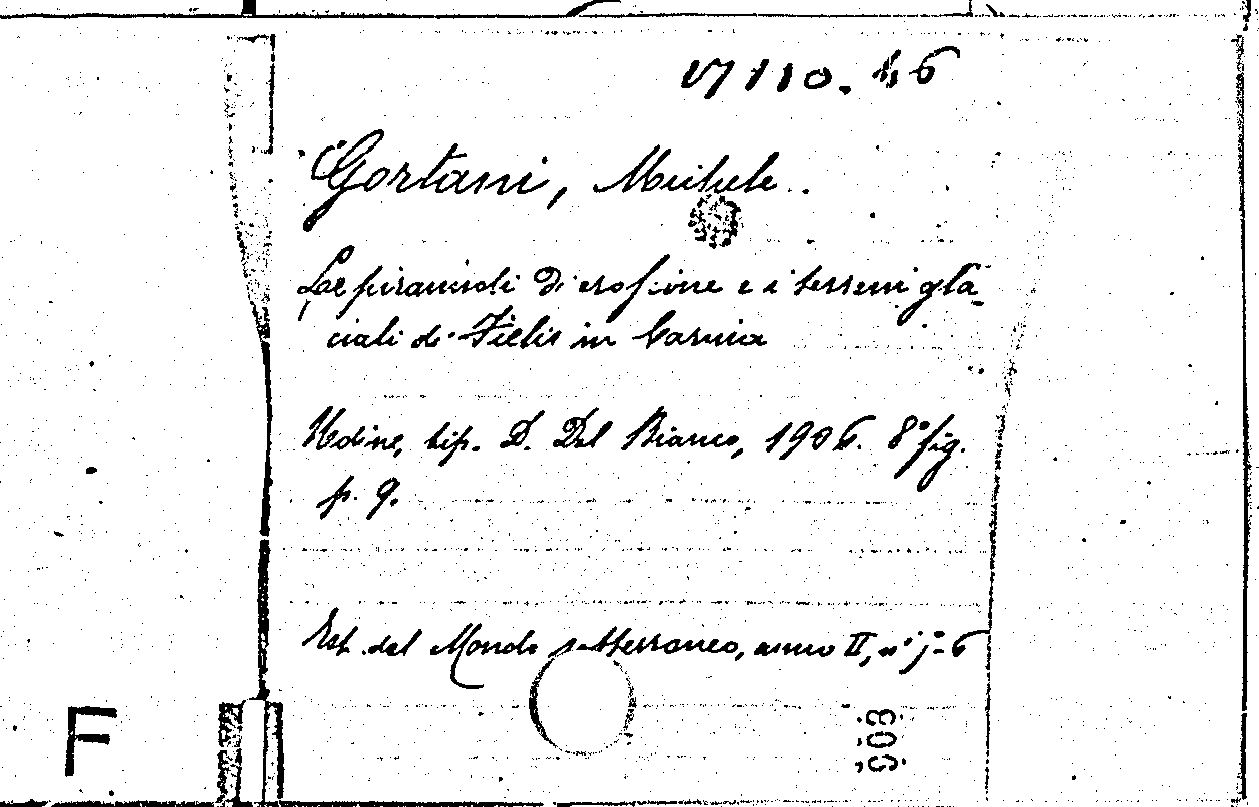 17110. 46
Gortani, Michele.
Le piramidi di erosione e i terreni gla-
ciali di Fielis in Carnia
Udine, tip. D. Del Bianco, 1906. 8° fig.
p. 9.
Est. dal Mondo sotterraneo, anno II, n° 5-6
F